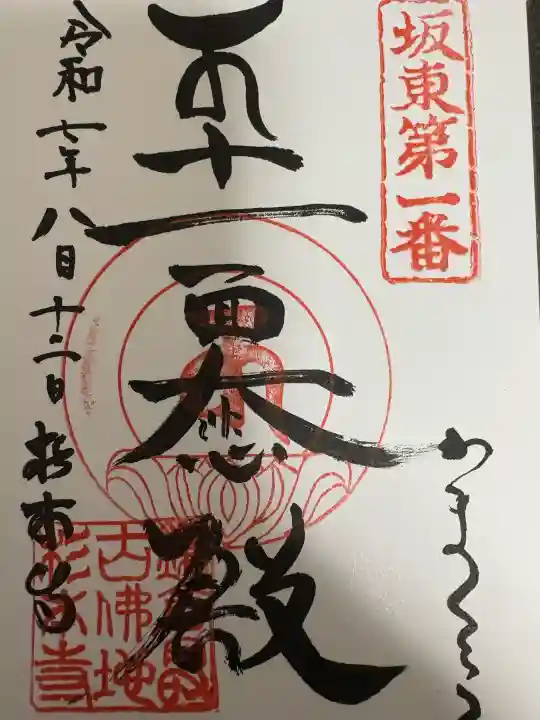 坂東第一番
かまくら
十一面大悲殿
令和七年八月十二日
杉本寺
古佛地
杉本寺